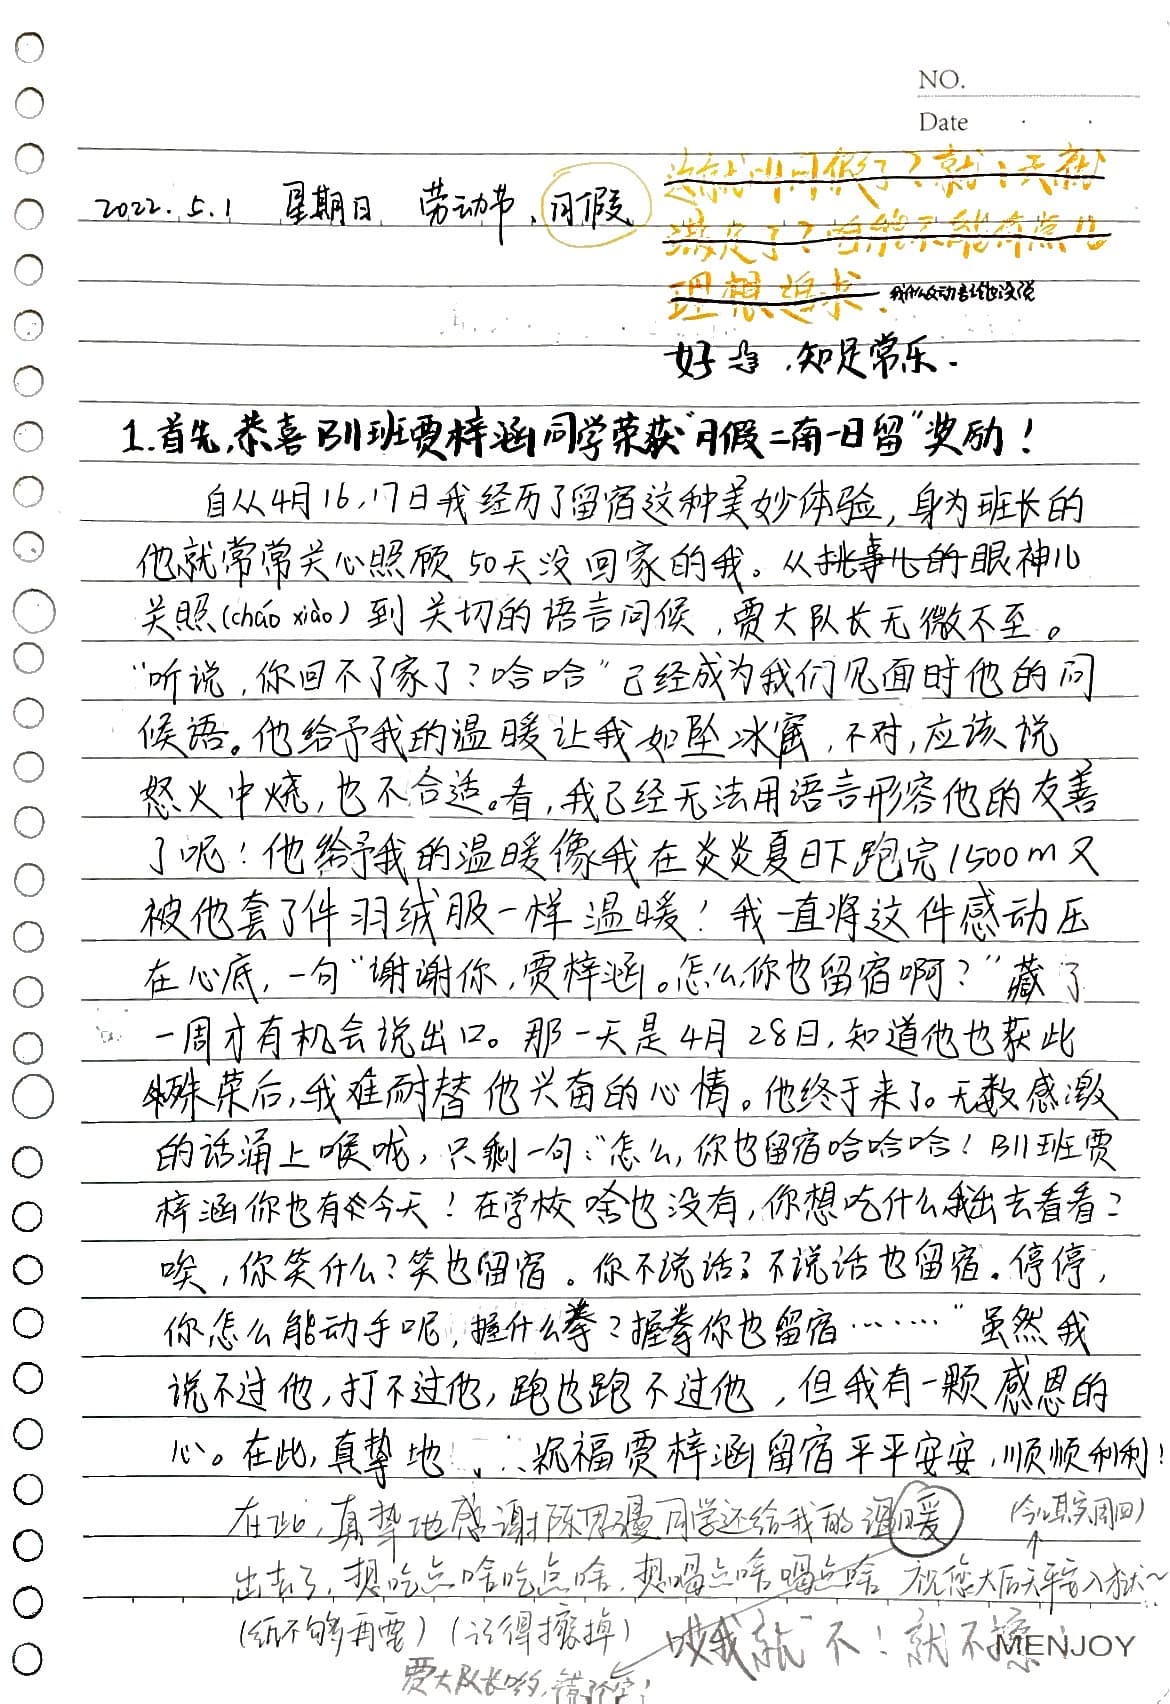 NO.
Date
2022.5.1 星期日 劳动节、月假
这就叫月假了?就1天就
满足了?咱能不能有点儿
理想追求.
我什么反动言论也没说
好 ,知足常乐.
1.首先,恭喜B11班贾梓涵同学荣获“月假二南一日留”奖励!
自从4月16,17日我经历了留宿这种美妙体验,身为班长的
他就常常关心照顾50天没回家的我。从挑事儿的眼神儿
关照(cháo xiào)到关切的语言问候,贾大队长无微不至。
“听说,你回不了家了?哈哈”已经成为我们见面时他的问
候语。他给予我的温暖让我如坠冰窖,不对,应该说
怒火中烧,也不合适。看,我已经无法用语言形容他的友善
了呢!他给予我的温暖像我在炎炎夏日下跑完1500m又
被他套了件羽绒服一样温暖!我一直将这件感动压
在心底,一句“谢谢你,贾梓涵。怎么,你也留宿啊?”藏了
一周才有机会说出口。那一天是4月28日,知道他也获此
殊荣后,我难耐替他兴奋的心情。他终于来了。无数感激
的话涌上喉咙,只剩一句:“怎么,你也留宿哈哈哈!B11班贾
梓涵你也有今天!在学校啥也没有,你想吃什么我出去看看?
唉,你笑什么?笑也留宿。你不说话?不说话也留宿。停停,
你怎么能动手呢,握什么拳?握拳你也留宿………”虽然我
说不过他,打不过他,跑也跑不过他,但我有一颗感恩的
心。在此,真挚地 祝福贾梓涵留宿平平安安,顺顺利利!
在此,真挚地感谢陈思漫同学还给我的温暖 (今儿其实周四)
出去了,想吃点啥吃点啥,想喝点啥喝点啥 祝您大后天平安入狱~
(纸不够再要)(记得擦掉) 哎我就不!就不擦!
贾大队长哟,错了字!
MENJOY